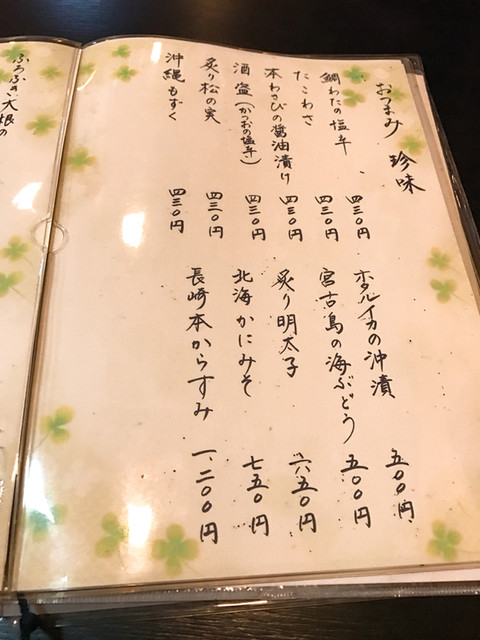 おつまみ 珍味
鯛わたの塩辛 四三〇円
たこわさ 四三〇円
本わさびの醤油漬け 四三〇円
酒盗(かつおの塩辛) 四三〇円
炙り松の実 四三〇円
沖縄もずく 四三〇円
ホタルイカの沖漬 五〇〇円
宮古島の海ぶどう 五〇〇円
炙り明太子 六五〇円
北海かにみそ 七五〇円
長崎本からすみ 一、二〇〇円
ふろふき大根の